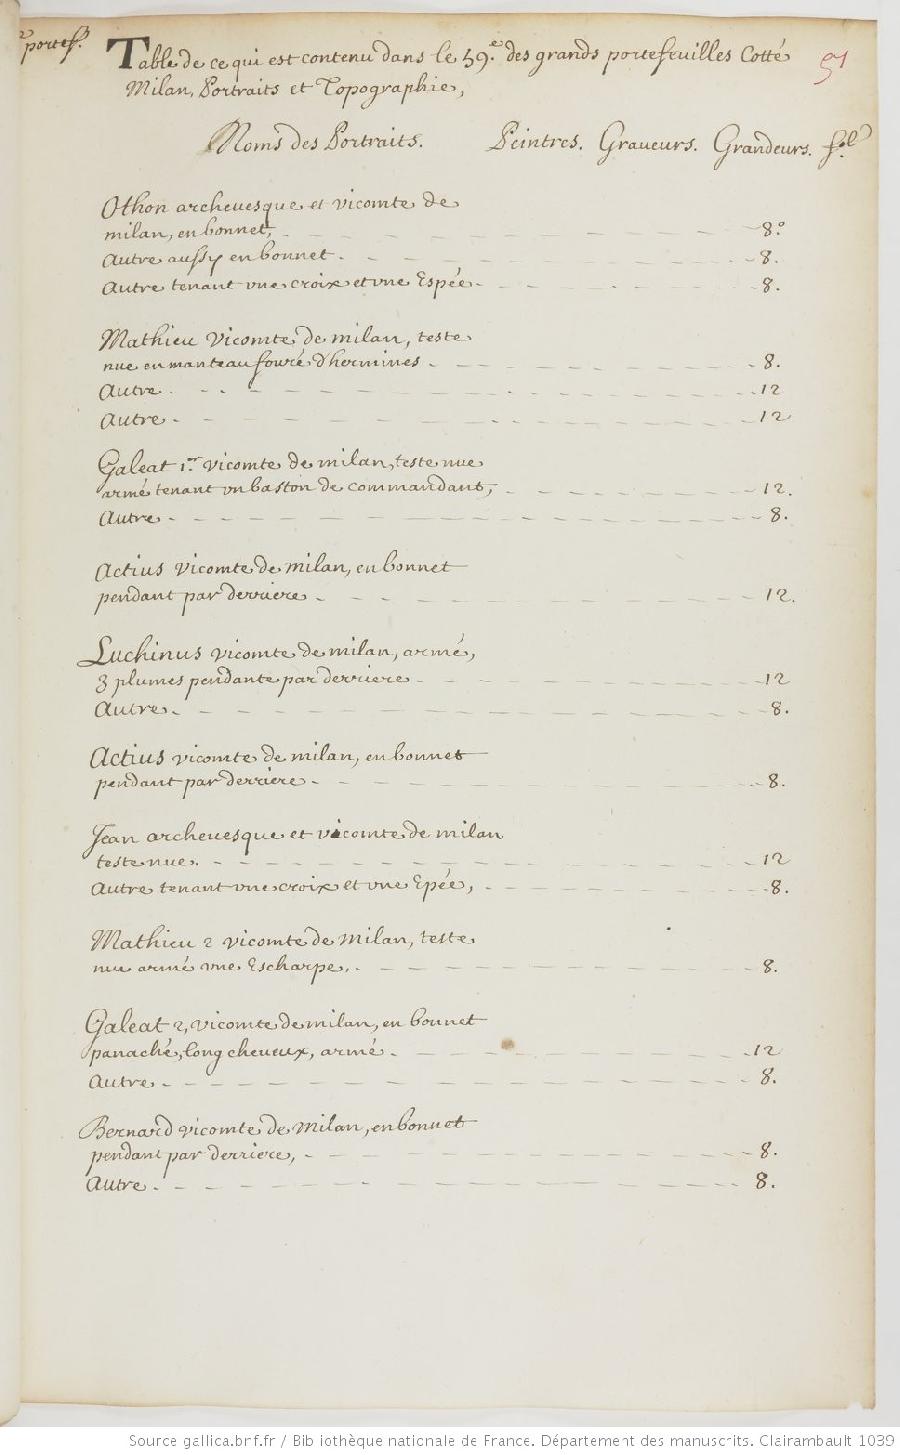 portef.
Table de ce qui est contenu dans le 59.e des grands portefeuilles Cotté
Milan, Portraits et Topographie,
51
Noms des Portraits. Peintres. Graveurs. Grandeurs. fol.
Othon archeuesque et vicomte de
milan, en bonnet, 8.o
Autre aussy en bonnet. 8.
Autre tenant vne croix et vne Espée. 8.
Mathieu vicomte de milan, teste
nue en manteau fouré d'hermines. 8.
Autre. 12
Autre. 12
Galeat 1.er vicomte de milan, teste nue
armé tenant vn baston de commandant, 12.
Autre. 8.
Actius vicomte de milan, en bonnet
pendant par derriere. 12.
Luchinus vicomte de milan, armé,
3 plumes pendante par derriere. 12
Autre. 8.
Actius vicomte de milan, en bonnet
pendant par derriere. 8.
Jean archeuesque et vicomte de milan
teste nue. 12
Autre tenant vne croix et vne Epée, 8.
Mathieu 2 vicomte de Milan, teste
nue armé vne Escharpe. 8.
Galeat 2, vicomte de milan, en bonnet
panaché, long cheueux, armé. 12
Autre. 8.
Bernard vicomte de Milan, en bonnet
pendant par derriere, 8.
Autre. 8.
Source gallica.bnf.fr / Bibliothèque nationale de France. Département des manuscrits. Clairambault 1039